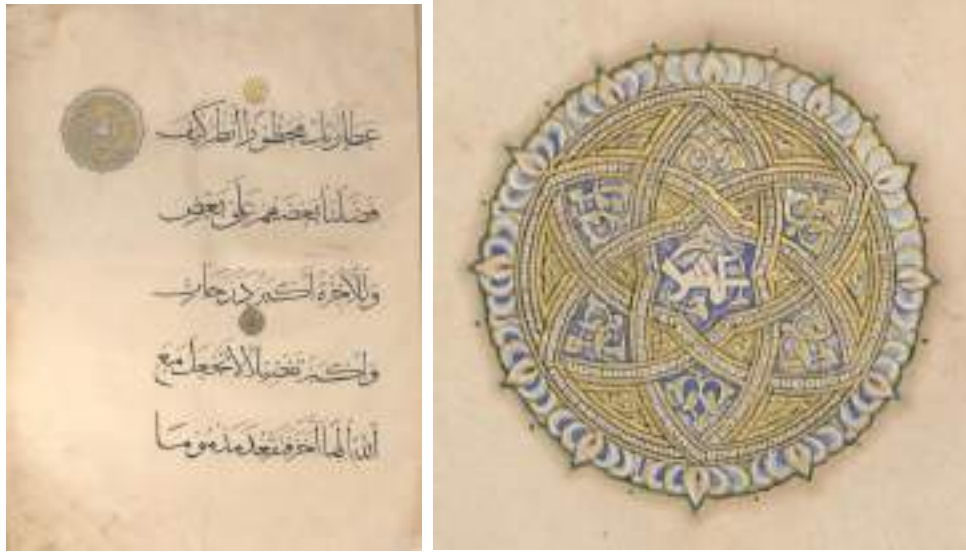 عطا ربك محظورا انظر كيف
فضلنا بعضهم على بعض
وللاخرة اكبر درجات
واكبر تفضيلا لا تجعل مع
الله الها اخر فتقعد مذموما